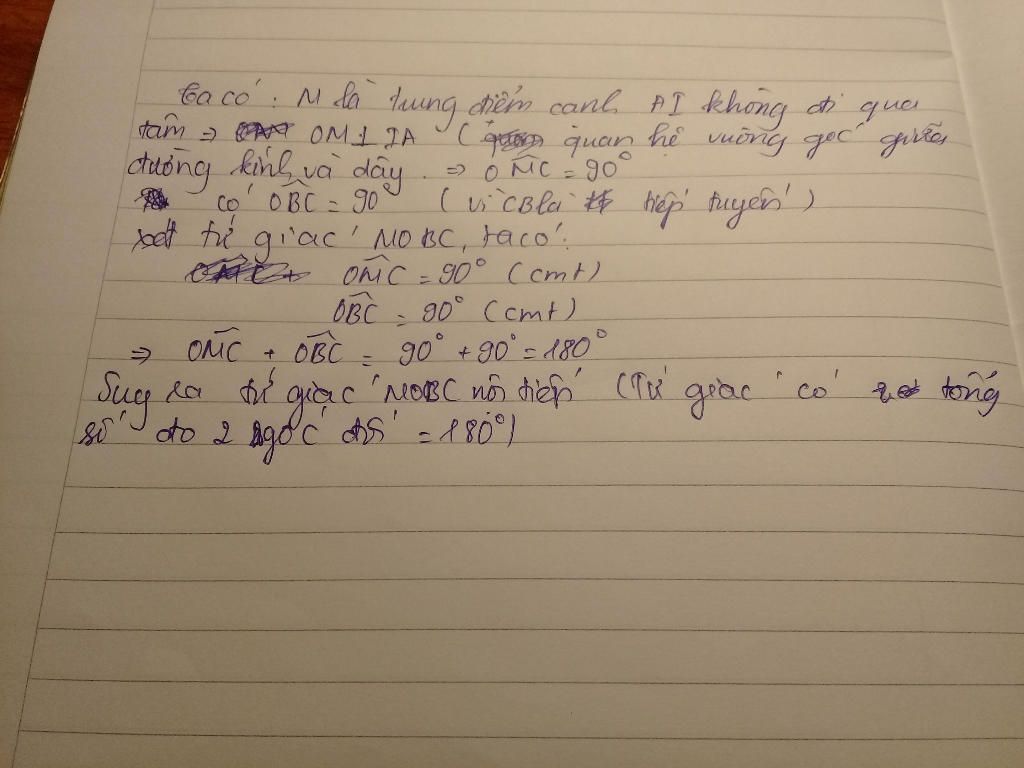 Ta có : M là trung điểm cạnh AI không đi qua
tâm => OM⊥IA ( quan hệ vuông góc giữa
đường kính và dây. => OMC = 90°
có OBC = 90° ( vì CB là tiếp tuyến )
xét tứ giác MOBC, ta có:
OMC = 90° (cmt)
OBC = 90° (cmt)
=> OMC + OBC = 90° + 90° = 180°
Suy ra tứ giác MOBC nội tiếp (Tứ giác có tổng
số đo 2 góc đối = 180°)